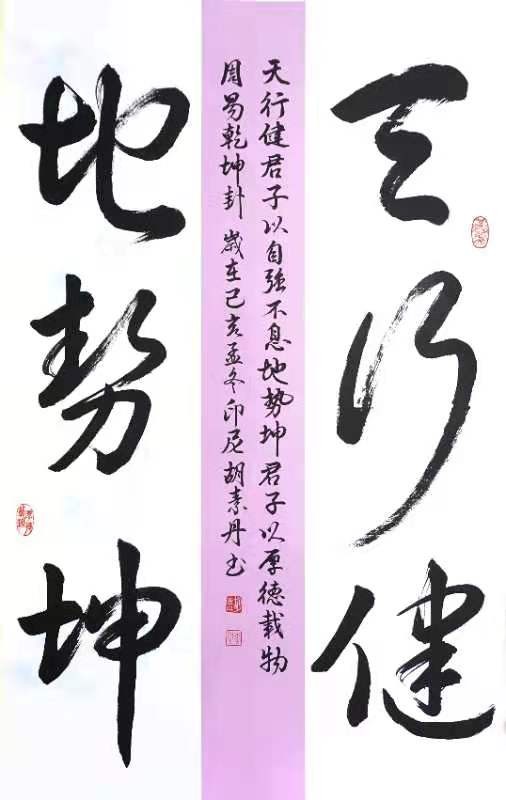 天行健
天行健君子以自强不息地势坤君子以厚德载物
周易乾坤卦 岁在己亥孟冬印尼胡素丹书
地势坤